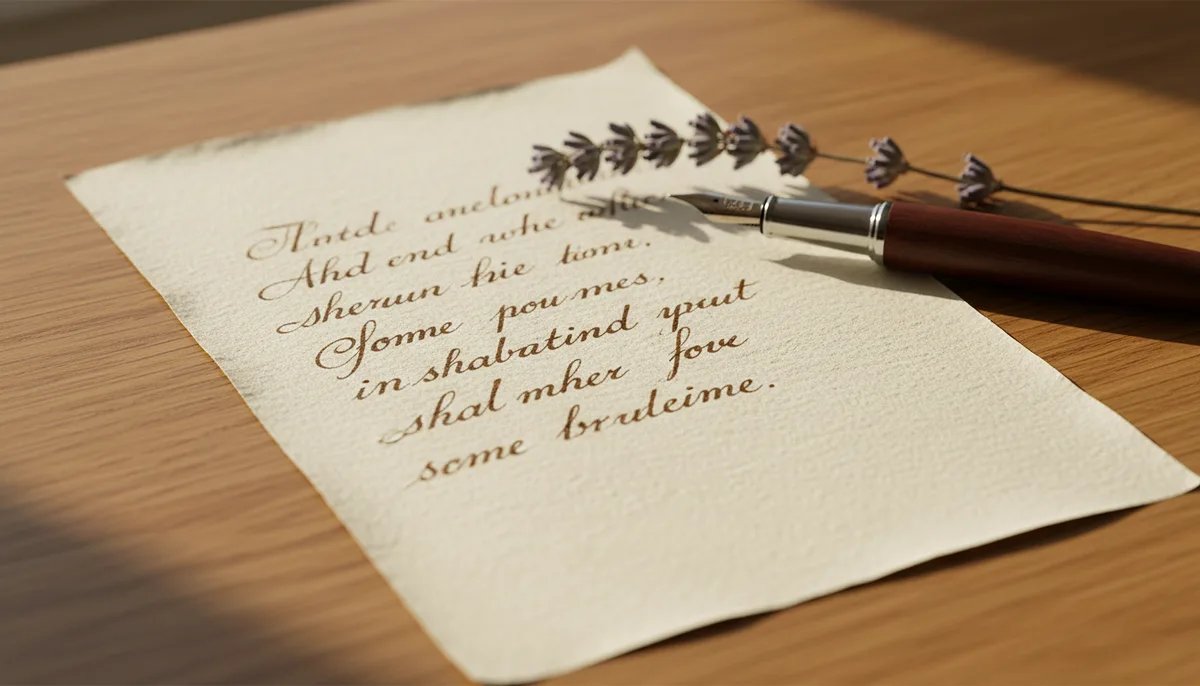 Thtde
Ahd end whe
sherun hie time.
Some pou mes.
in shabatind yput
shal mher fove
scme bruleime.